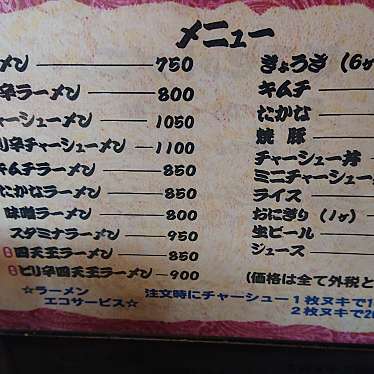 メニュー
メン 750
辛ラーメン 800
ャーシューメン 1050
リ辛チャーシューメン 1100
キムチラーメン 850
たかなラーメン 850
味噌ラーメン 800
スタミナラーメン 950
四天王ラーメン 850
ピリ辛四天王ラーメン 900
☆ラーメン
エコサービス☆
ぎょうざ (6ヶ
キムチ
たかな
焼豚
チャーシュー丼
ミニチャーシュー
ライス
おにぎり (1ヶ)
生ビール
ジュース
(価格は全て外税と
注文時にチャーシュー1枚ヌキで1
2枚ヌキで20